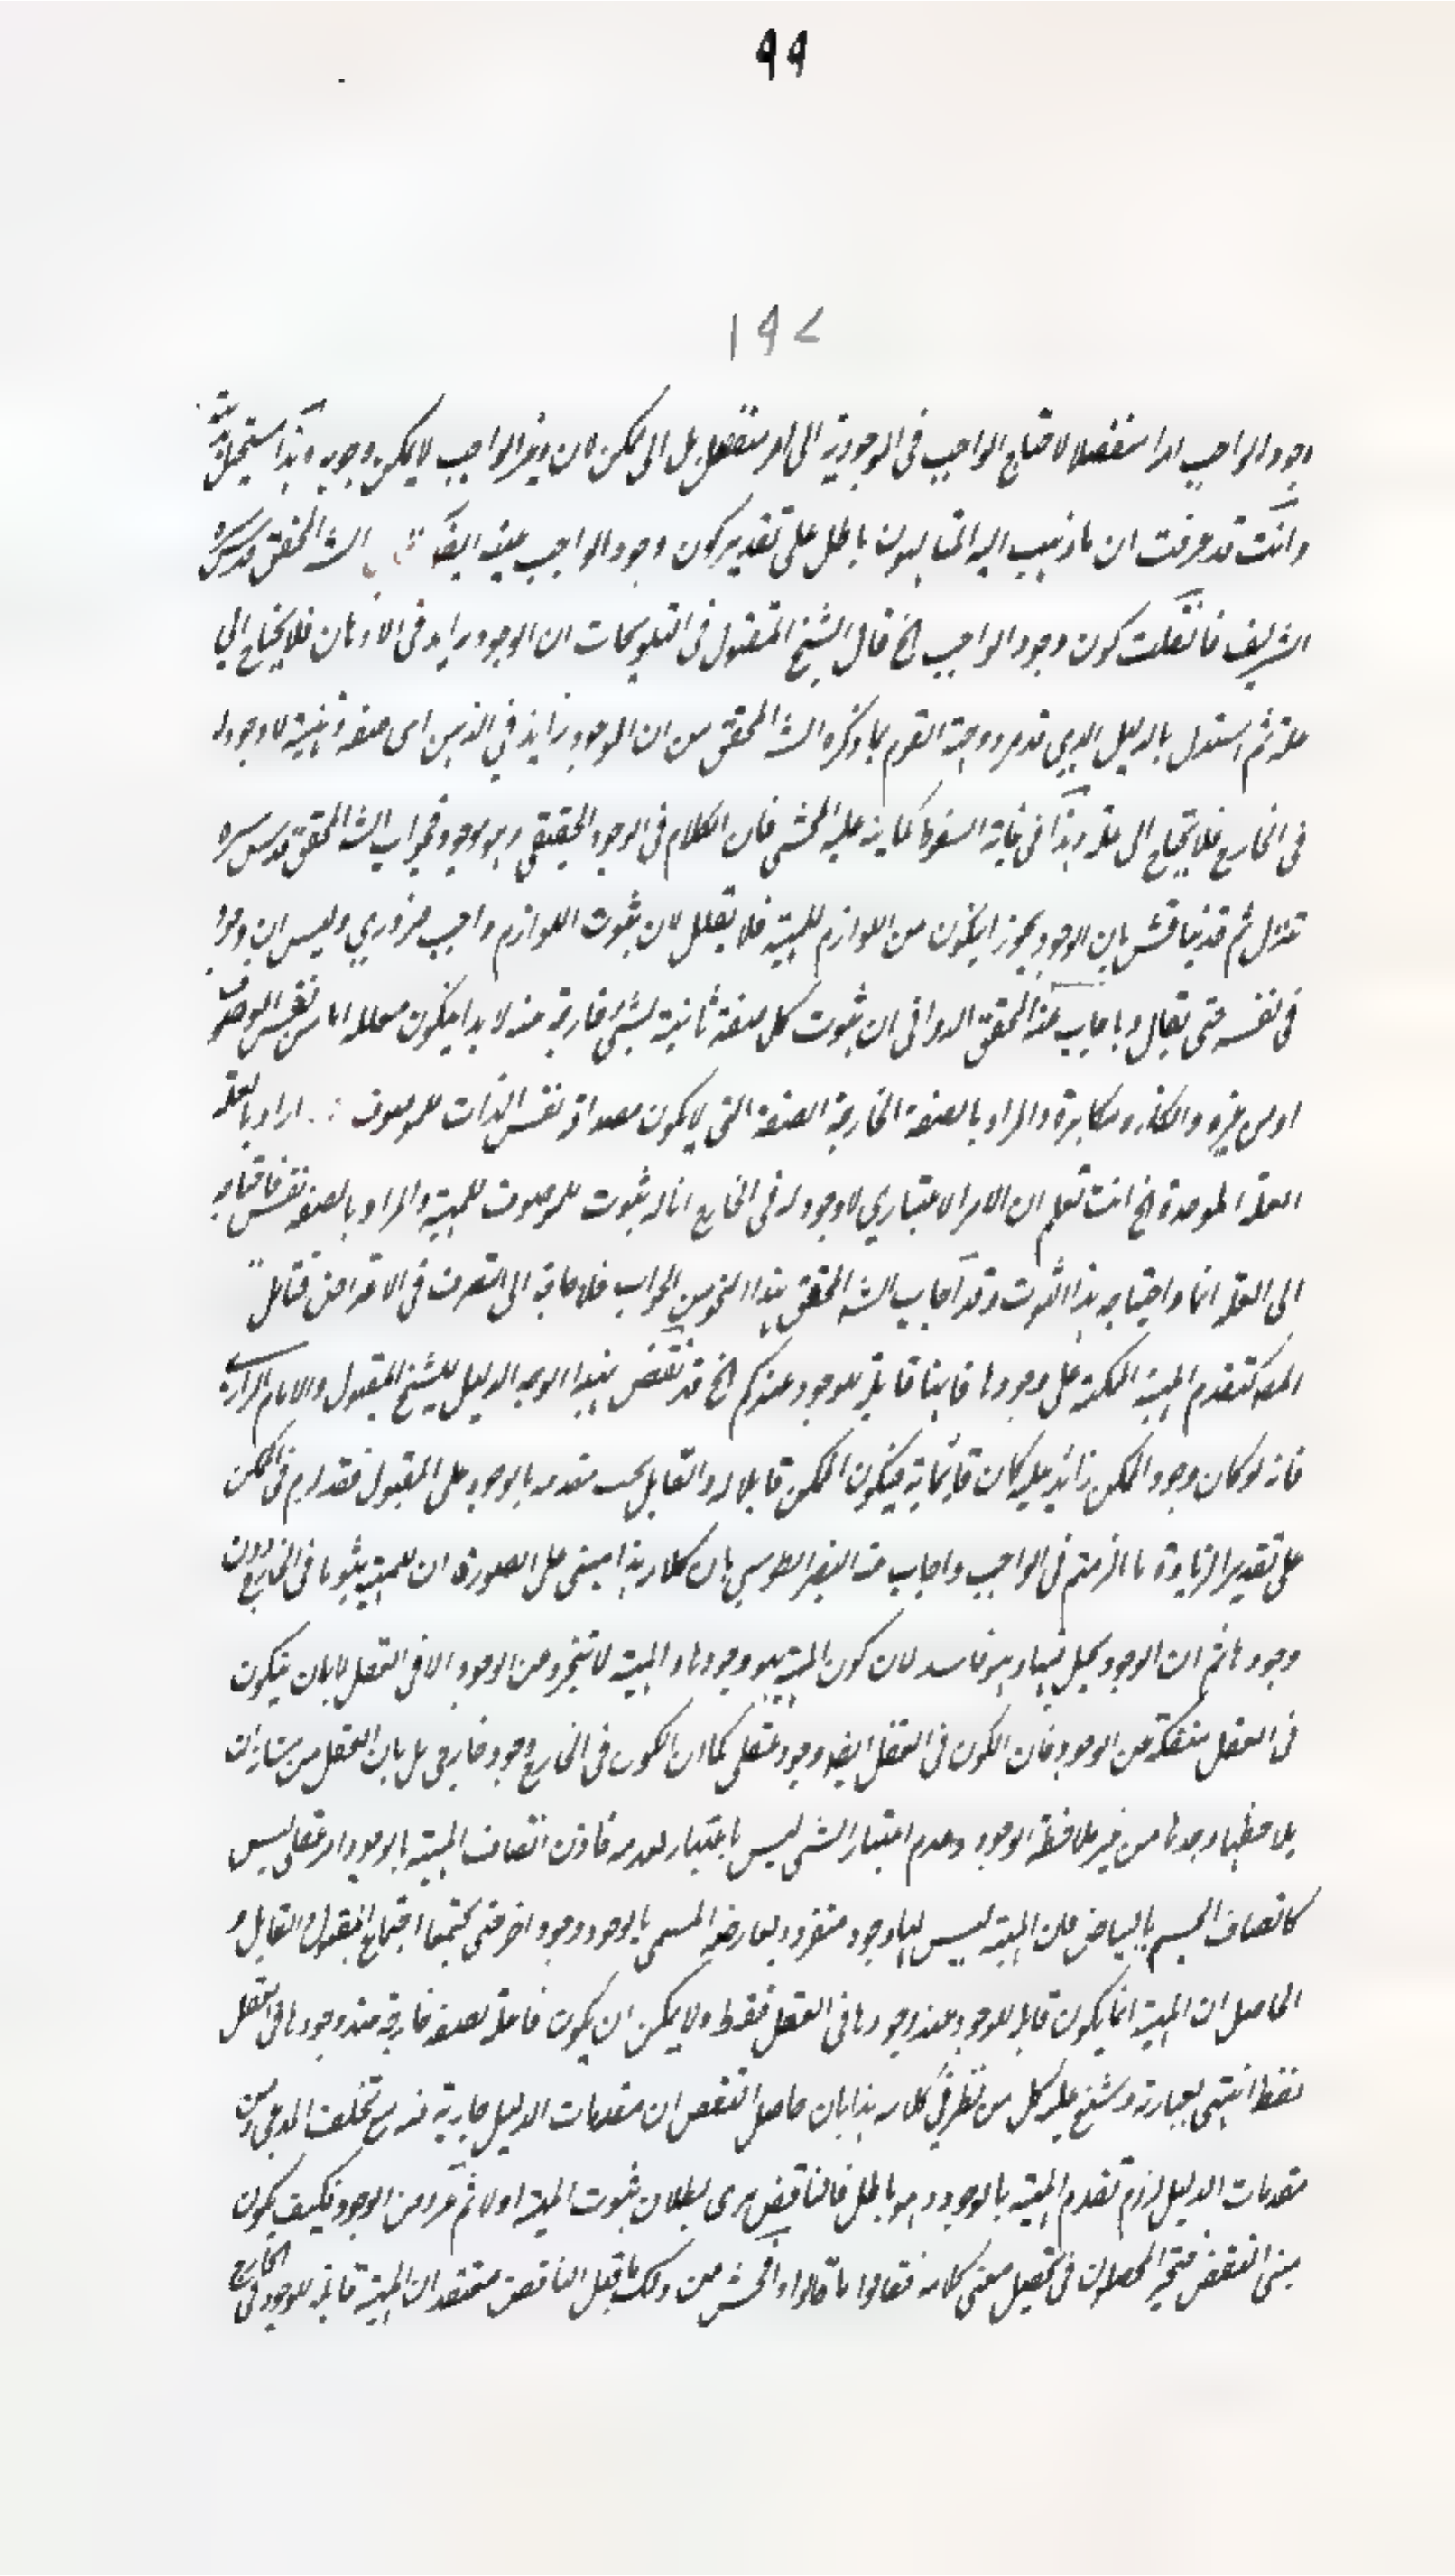 ۹۹
۱۹۷
وجود الواجب امرا منفصلا لاحتاج الواجب فى الموجودية الى امر منفصل بل الى ممكن لان وغير الواجب لا يكون وجوبه وهذا استحيل
وانت قد عرفت ان ما ذهب اليه المتالهون باطل على تقدير كون وجود الواجب عينه ايضا الشه المحقق قدس سره
الشريف فان قلت كون وجود الواجب الخ قال الشيخ المقتول فى التلويحات ان الوجود زايد فى الاذهان فلا يحتاج الى
علة ثم استدل بالدليل الذى قد مر ووجه القوم بما ذكره الشه المحقق من ان الوجود زايد فى الذهن اى صفة ذهنية لا وجود لها
فى الخارج فلا يحتاج الى علة وهذا فى غاية السقوط كما ينه عليه المحشى فان الكلام فى الوجود الحقيقى وهو موجود فجواب الشه المحقق قدس سره
تنزل ثم قد يناقش بان الوجود يجوز ان يكون من اللوازم للمهية فلا يعلل لان ثبوت اللوازم واجب ضرورى وليس ان وجود
فى نفسه حتى يقال وباجاب عنه المحقق الدوانى ان ثبوت كل صفة ثابتة لشئ خارجة عنه لا بد ان يكون معللا اما من نفس الموصوف
او من غيره وانكاره مكابرة والمراد بالصفة الخارجة الصفة التى لا يكون مصداقه نفس الذات للموصوف اراد بالعلة
العلة الموجدة الخ انت تعلم ان الامر الاعتبارى لا وجود له فى الخارج انما له ثبوت للموصوف للمهية والمراد بالصفة نفس فاحتياجه
الى العلة انما احتياجه بهذا الثبوت وقد اجاب الشه المحقق بهذا النحو من الجواب فلا حاجة الى التعرض فى الاعتراض فتامل
المص كتقدم المهية الممكنة على وجودها فانها قابلة للوجود عندكم الخ قد نقض بهذا الوجه الدليل الشيخ المقتول والامام الرازى
فانه لو كان وجود الممكن زائدا عليه كان قائما به فيكون الممكن قابلا له والقابل يجب تقدمه بالوجود على المقبول فقد لزم فى الممكن
على تقدير الزيادة ما الزمتم فى الواجب واجاب عنه النصير الطوسى بان كلامه هذا مبنى على تصوره ان للمهية ثبوتا فى الخارج دون
وجودها ثم ان الوجود يحل فيها وهو فاسد لان كون المهية هو وجودها والمهية لا تتجرد عن الوجود الا فى العقل لا بان يكون
فى العقل منفكة عن الوجود فان الكون فى العقل ايضا وجود عقلى كما ان الكون فى الخارج وجود خارجى بل بان العقل من شانه ان
يلاحظها وحدها من غير ملاحظة الوجود وعدم اعتبار الشئ ليس باعتبار لعدمه فاذن اتصاف المهية بالوجود امر عقلى ليس
كاتصاف الجسم بالبياض فان المهية ليس لها وجود منفرد ولعارضها المسمى بالوجود وجود اخر حتى يجتمعا اجتماع المقبول والقابل و
الحاصل ان المهية انما يكون قابلا للوجود عند وجودها فى العقل فقط ولا يمكن ان يكون فاعلة لصفة خارجة عند وجودها فى العقل
فقط انتهى بعبارته وشنع عليه كل من نظر فى كلامه هذا بان حاصل النقض ان مقدمات الدليل جارية فيه مع تخلف المدعى ومن
مقدمات الدليل لزوم تقدم المهية بالوجود وهو باطل فالناقض يرى بطلان ثبوت المهية اولا ثم عروض الوجود فكيف يكون
مبنى النقض فتحير المحصلون فى تحصيل معنى كلامه فقالوا ما قالوا وافحش من ذلك ما قيل الناقض معتقد ان المهية قابلة للوجود فى الخارج